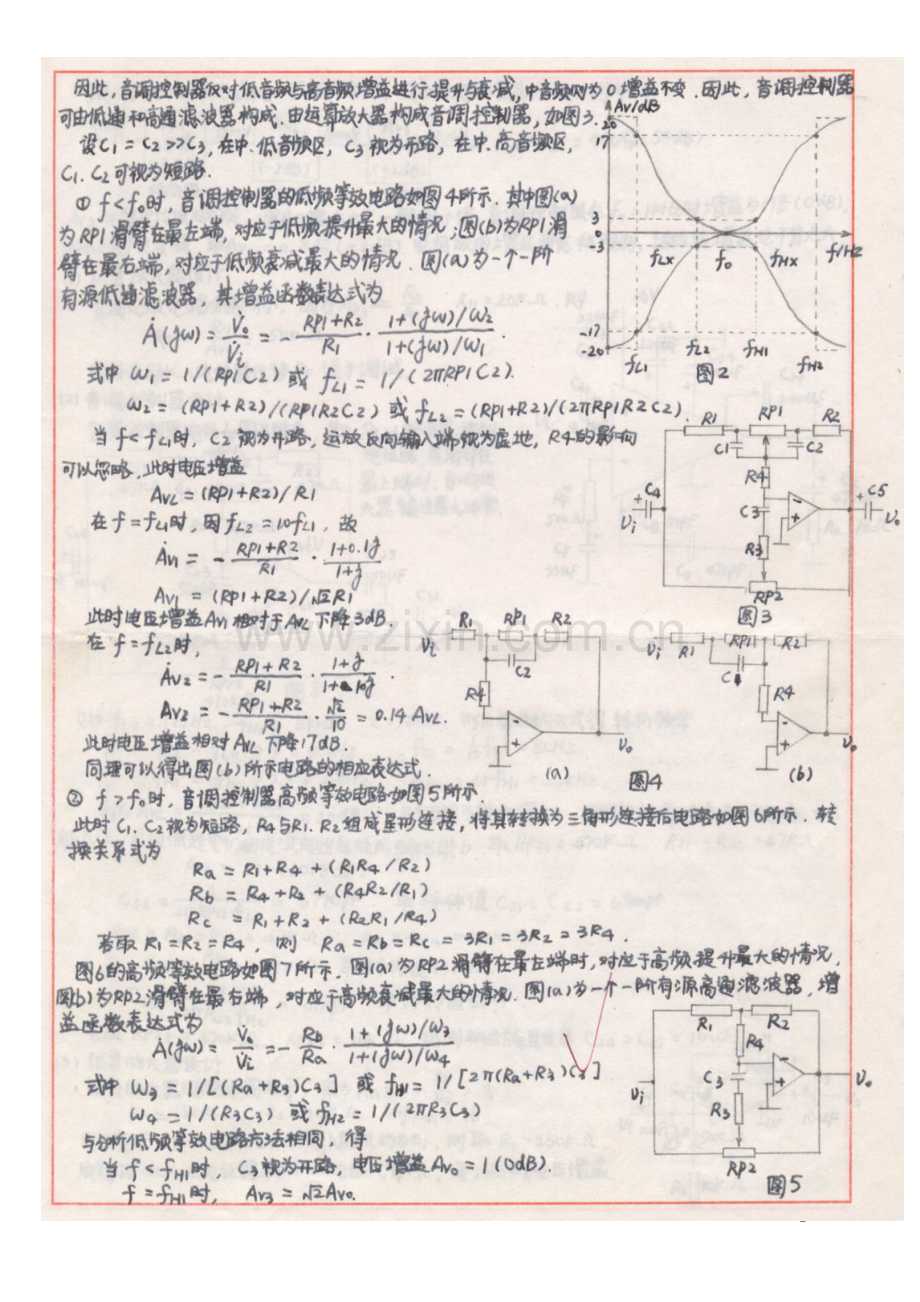 因此,音调控制器仅对低音频与高音频增益进行提升与衰减,中音频则为0增益不变.因此,音调控制器
可由低通和高通滤波器构成.由运算放大器构成音调控制器,如图3.
设C1=C2>>C3,在中.低音频区,C3视为开路,在中.高音频区,
C1.C2可视为短路.
① f<f0时,音调控制器的低频等效电路如图4所示.其中图(a)
为RP1滑臂在最左端,对应于低频提升最大的情况;图(b)为RP1滑
臂在最右端,对应于低频衰减最大的情况.图(a)为一个一阶
有源低通滤波器,其增益函数表达式为
Ȧ(jω)=V̇o/V̇i=-(RP1+R2)/R1·(1+(jω)/ω2)/(1+(jω)/ω1)
式中ω1=1/(RP1C2)或fL1=1/(2πRP1C2).
ω2=(RP1+R2)/(RP1R2C2)或fL2=(RP1+R2)/(2πRP1R2C2).
当f<fL1时,C2视为开路,运放反向输入端视为虚地,R4的影响
可以忽略.此时电压增益
AVL=(RP1+R2)/R1
在f=fL1时,因fL2=10fL1,故
Ȧv1=-(RP1+R2)/R1·(1+0.1j)/(1+j)
Av1=(RP1+R2)/√2R1
此时电压增益Av1相对于AVL下降3dB.
在f=fL2时,
Ȧv2=-(RP1+R2)/R1·(1+j)/(1+10j).
Av2=-(RP1+R2)/R1·√2/10=0.14AVL.
此时电压增益相对AVL下降17dB.
同理可以得出图(b)所示电路的相应表达式.
② f>f0时,音调控制器高频等效电路如图5所示.
此时C1.C2视为短路,R4与R1.R2组成星形连接,将其转换为三角形连接后电路如图6所示.转
换关系式为
Ra=R1+R4+(R1R4/R2)
Rb=R4+R2+(R4R2/R1)
Rc=R1+R2+(R2R1/R4)
若取R1=R2=R4,则Ra=Rb=Rc=3R1=3R2=3R4.
图6的高频等效电路如图7所示,图(a)为RP2滑臂在最左端时,对应于高频提升最大的情况,
图(b)为RP2滑臂在最右端,对应于高频衰减最大的情况.图(a)为一个一阶有源高通滤波器,增
益函数表达式为
Ȧ(jω)=V̇o/V̇i=-Rb/Ra·(1+(jω)/ω3)/(1+(jω)/ω4)
式中ω3=1/[(Ra+R3)C3]或fH1=1/[2π(Ra+R3)C3]
ω4=1/(R3C3)或fH2=1/(2πR3C3)
与分析低频等效电路方法相同,得
当f<fH1时,C3视为开路,电压增益Av0=1(0dB).
f=fH1时,Av3=√2Av0.
Av/dB
20
17
3
0
-3
-17
-20
fLX f0 fHX f/HZ
fL1 fL2 fH1 fH2
图2
R1 RP1 R2
C1 C2
R4
C4 C3 C5
Vi Vo
R3
RP2
图3
R1 RP1 R2
Vi
C2
R4
Vo
(a)
Vi R1 RP1 R2
C1
R4
Vo
(b)
图4
R1 R2
R4
C3
Vi Vo
R3
RP2
图5
www.zixin.com.cn